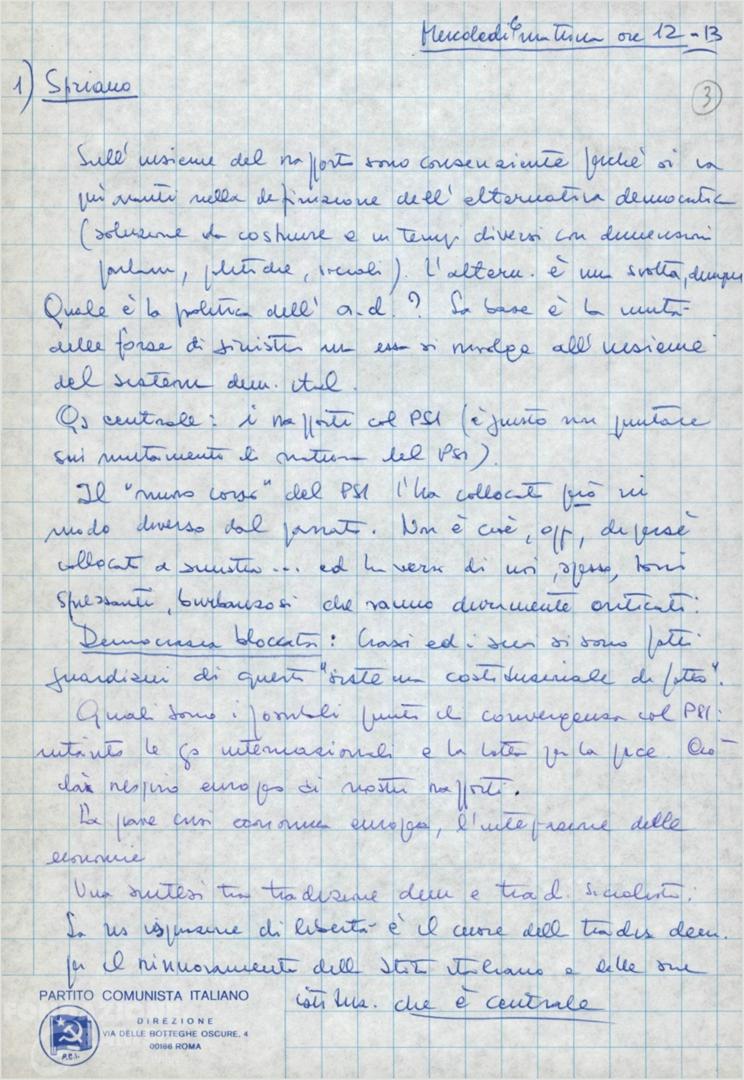 Mercoledì mattina ore 12-13
1) Spriano
3
Sull'insieme del rapporto sono consenziente perché si va
più avanti nella definizione dell'alternativa democratica
(soluzione da costruire e in tempi diversi con dimensioni
parlam, politiche, sociali). L'altern. è una svolta, dunque
Quale è la politica dell'a.d.? La base è la unità
delle forze di sinistra ma essa si rivolge all'insieme
del sistema dem. ital.
Qs centrale: i rapporti col PSI (è giusto non puntare
sui mutamenti di natura del PSI).
Il "nuovo corso" del PSI l'ha collocato però in
modo diverso dal passato. Non è cioè, oggi, di per sé
collocato a sinistra... ed ha verso di noi, spesso, toni
sprezzanti, burbanzosi che vanno duramente criticati:
Democrazia bloccata: Craxi ed i suoi si sono fatti
guardiani di questo "sistema costituzionale di fatto".
Quali sono i possibili punti di convergenza col PSI:
intanto le qs internazionali e la lotta per la pace. Ciò
dà respiro europeo ai nostri rapporti.
La grave crisi economica europea, l'integrazione delle
economie
Una sintesi tra tradizione dem e trad. socialista:
La ns ispirazione di libertà è il cuore della tradiz dem.
per il rinnovamento dello Stato italiano e delle sue
istituz. che è centrale
PARTITO COMUNISTA ITALIANO
DIREZIONE
VIA DELLE BOTTEGHE OSCURE, 4
00186 ROMA
P.C.I.